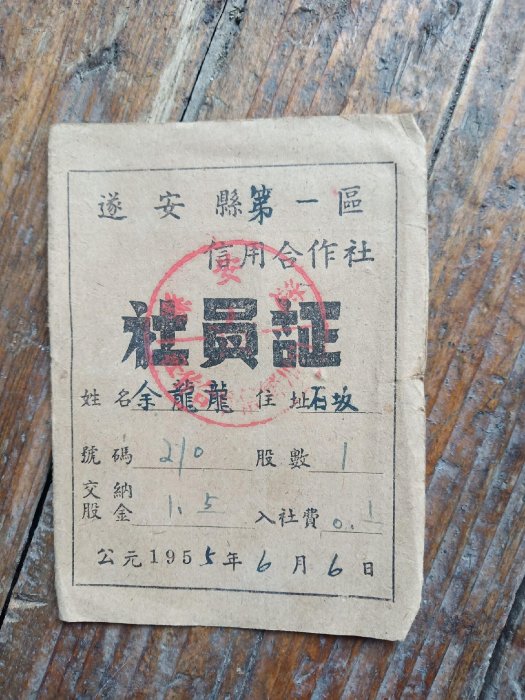 遂安縣第一區
信用合作社
社員証
姓名余龍龍 住址石坂
號碼 210 股數 1
交納股金 1.5 入社費 0.1
公元1955年6月6日